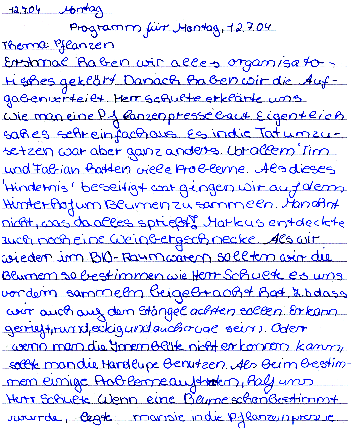 12.7.04 Montag
Programm für Montag, 12.7.04
Thema: Pflanzen
Erstmal haben wir alles organisato-
risches geklärt. Danach haben wir die Auf-
gaben verteilt. Herr Schulte erklärte uns
wie man eine Pflanzenpresse baut. Eigentlich
sah es sehr einfach aus. Es in die Tat umzu-
setzen war aber ganz anders. Vor allem Tim
und Fabian hatten viele Probleme. Als dieses
"Hindernis" beseitigt war gingen wir auf den
Hinterhof um Blumen zu sammeln. Man ahnt
nicht, was da alles sprießt! Markus entdeckte
auch noch eine Weinbergschnecke. Als wir
wieder im BIO-Raum waren sollten wir die
Blumen so bestimmen wie Herr Schulte es uns
vor dem sammeln beigebracht hat, z.b dass
wir auch auf den Stängel achten sollen. Er kann
gerieft, rund, eckig und auch oval sein). Oder
wenn man die Innenblüte nicht erkennen kann,
sollte man die Handlupe benutzen. Als beim bestim-
men einige Probleme auftraten, half uns
Herr Schulte. Wenn eine Blume schon bestimmt
wurde, legte man sie in die Pflanzenpresse